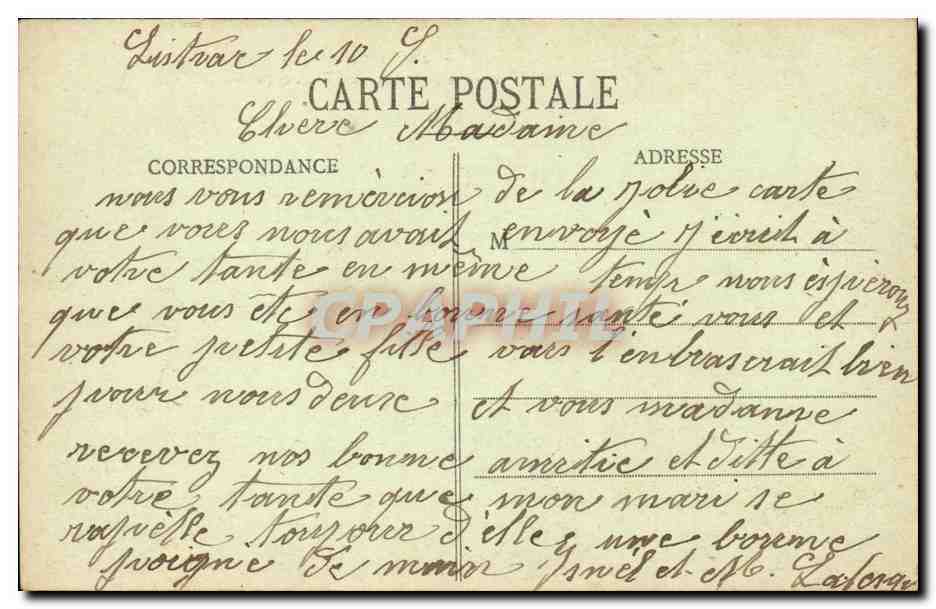 Listrac le 10 J.
CARTE POSTALE
Chere Madame
CORRESPONDANCE ADRESSE
nous vous remèrcion de la jolie carte
que vous nous avait M envoyè j'ecrit à
votre tante en même temps nous èspérons
que vous ete en bonne santé vous et
votre petite fille vous l'enbraserait bien
pour nous deux et vous madame
recevez nos bonne amitie et ditte à
votre tante que mon mari se
rapèlle toujour d'elle, une bonne
poigne de main et M.
CPAPHIL